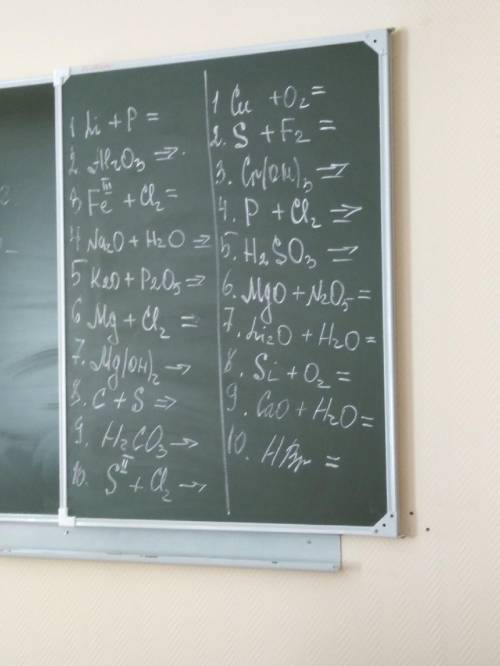 1 Li + P =
2. Al2O3 ⇒
3 Fe^III + Cl2 =
4 Na2O + H2O ⇒
5 K2O + P2O5 ⇒
6 Mg + Cl2 =
7. Mg(OH)2 →
8. C + S ⇒
9. H2CO3 →
10. S^II + Cl2 →
1 Cu + O2 =
2. S + F2 =
3. Cr(OH)3 ⇒
4. P + Cl2 ⇒
5. H2SO3 ⇒
6. MgO + N2O5 =
7. Li2O + H2O =
8. Si + O2 =
9. CaO + H2O =
10. HBr =